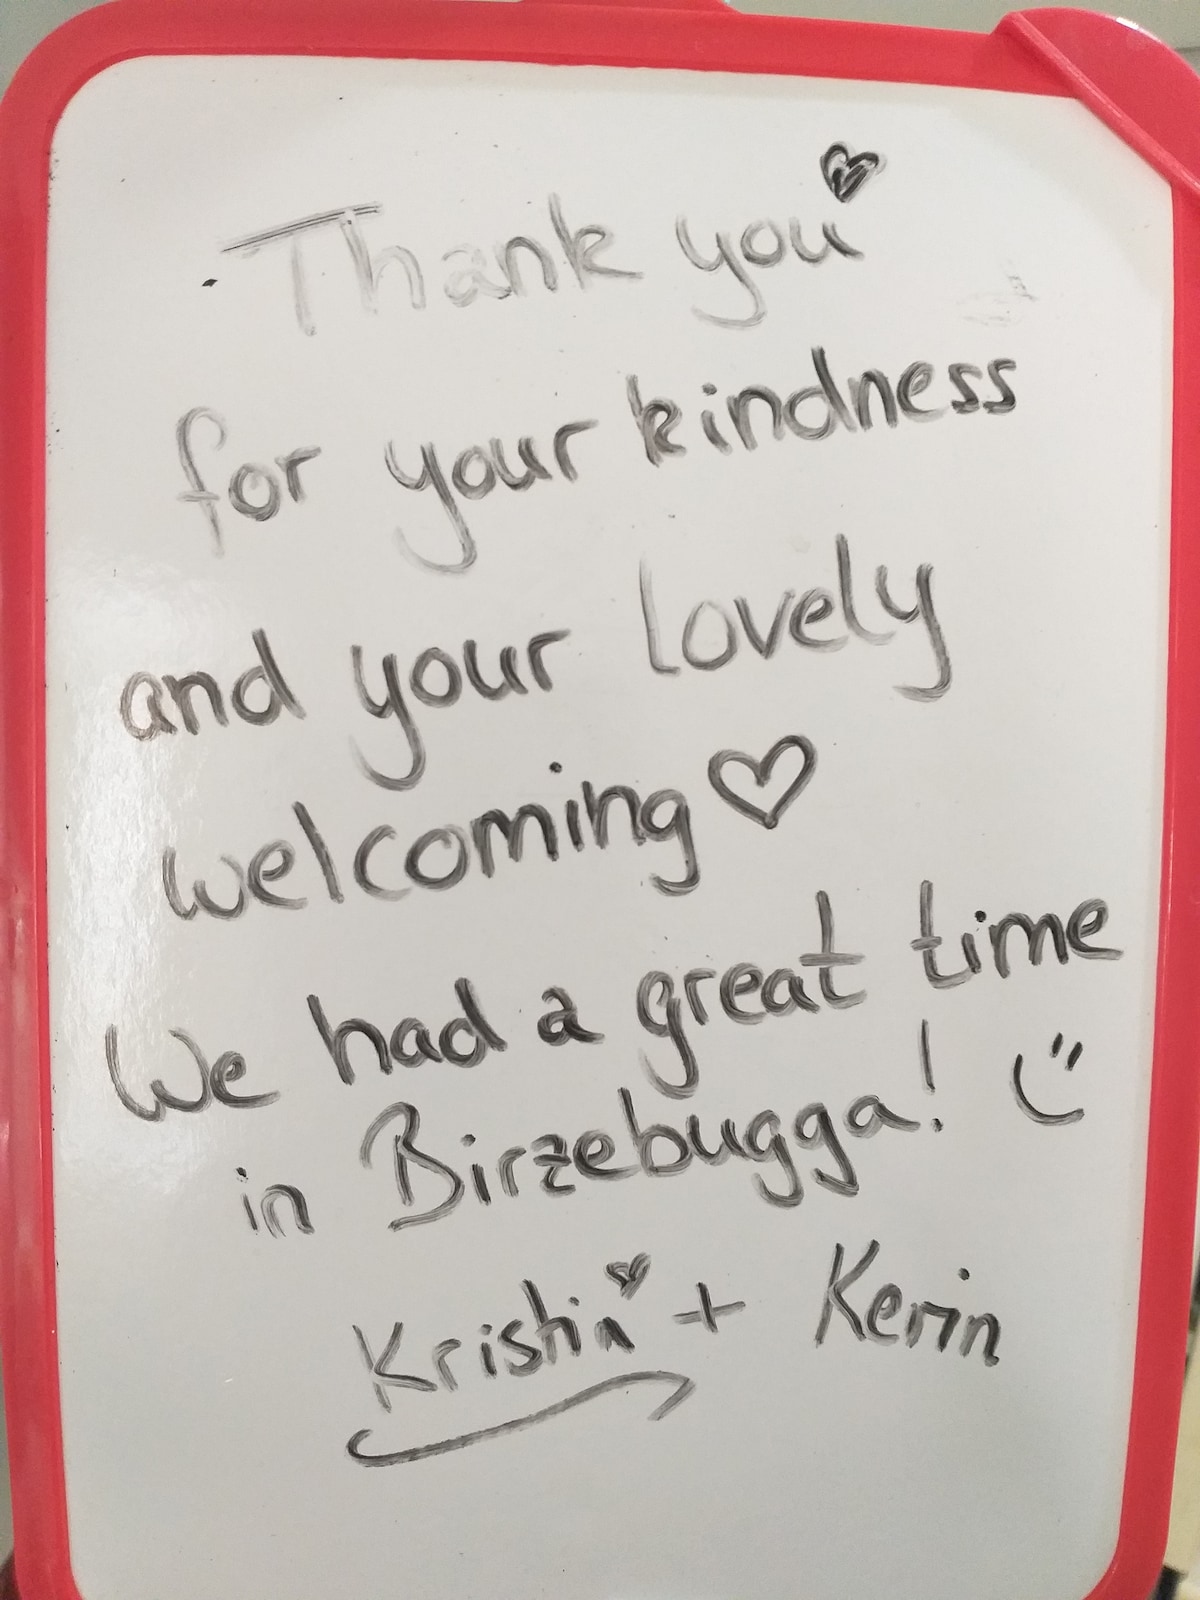 Thank you
for your kindness
and your lovely
welcoming ♡
We had a great time
in Birzebugga! :)
Kristin + Kerin